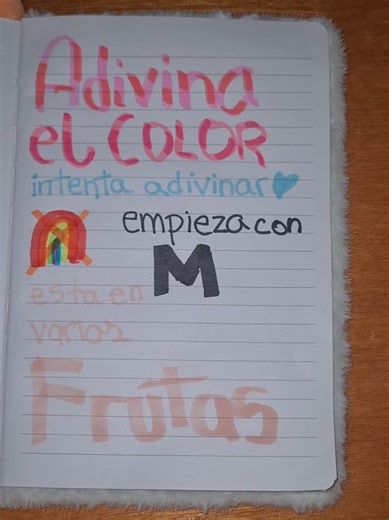 Adivina
el COLOR
intenta adivinar
empieza con
M
esta en
varias
Frutas